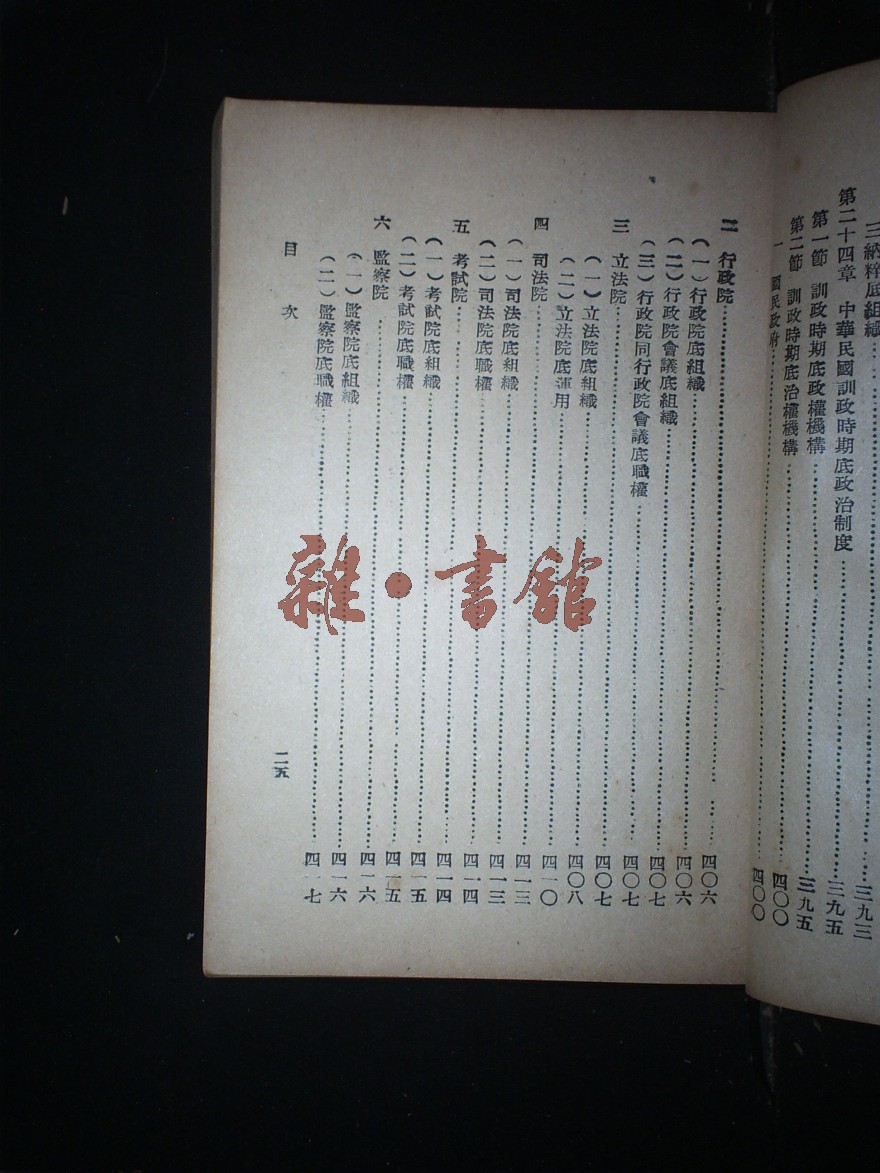 三納粹底組織……三九三
第二十四章 中華民國訓政時期底政治制度……三九五
第一節 訓政時期底政權機構……三九五
第二節 訓政時期底治權機構……四〇〇
一 國民政府……四〇〇
二 行政院……四〇六
(一)行政院底組織……四〇六
(二)行政院會議底組織……四〇七
(三)行政院同行政院會議底職權……四〇七
三 立法院……四〇七
(一)立法院底組織……四〇八
(二)立法院底運用……四一〇
四 司法院……四一三
(一)司法院底組織……四一三
(二)司法院底職權……四一四
五 考試院……四一四
(一)考試院底組織……四一五
(二)考試院底職權……四一五
六 監察院……四一六
(一)監察院底組織……四一六
(二)監察院底職權……四一七
目次
二五
雜·書館